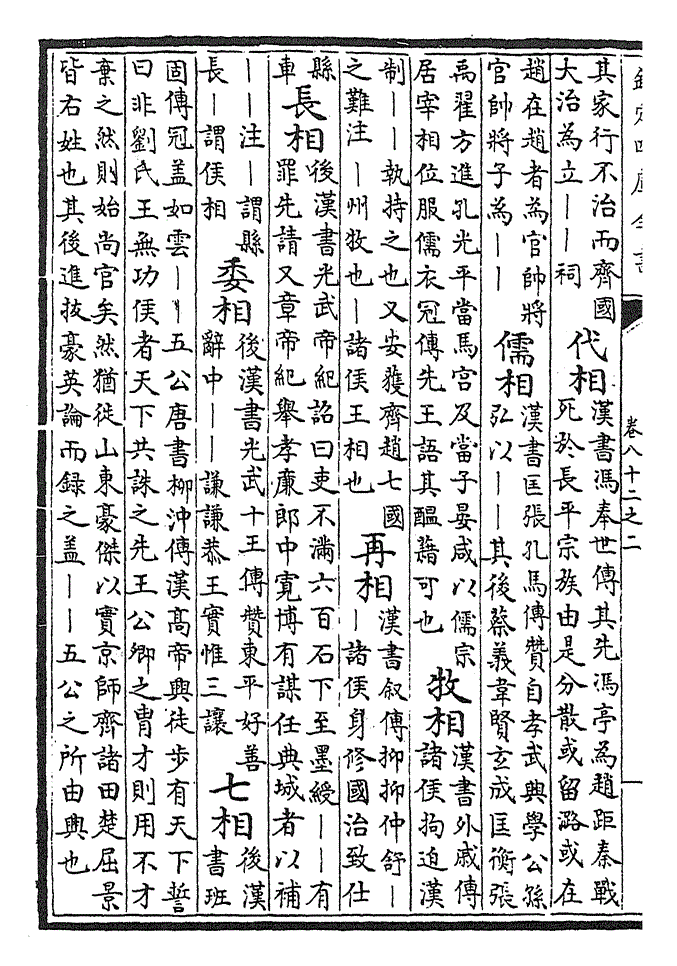 欽定四庫全書
卷八十二之二
其家行不治而齊國
大治為立——祠
代相
漢書馮奉世傳其先馮亭為趙距秦戰
死於長平宗族由是分散或留潞或在
趙在趙者為官帥將
官帥將子為——
儒相
漢書匡張孔馬傳贊自孝武興學公孫
弘以——其後蔡義韋賢玄成匡衡張
禹翟方進孔光平當馬宮及當子晏咸以儒宗
居宰相位服儒衣冠傳先王語其醖藉可也
牧相
漢書外戚傳
諸侯拘迫漢
制——執持之也又安獲齊趙七國
之難注—州牧也—諸侯王相也
再相
漢書叙傳抑抑仲舒—
—諸侯身修國治致仕
縣
車
長相
後漢書光武帝紀詔曰吏不滿六百石下至墨綬——有
罪先請又章帝紀舉孝廉郎中寬博有謀任典城者以補
——注—謂縣
長—謂侯相
委相
後漢書光武十王傳贊東平好善
辭中——謙謙恭王實惟三讓
七相
後漢
書班
固傳冠盖如雲——五公唐書柳沖傳漢高帝興徒步有天下誓
曰非劉氏王無功侯者天下共誅之先王公卿之胄才則用不才
棄之然則始尚官矣然猶徙山東豪傑以實京師齊諸田楚屈景
皆右姓也其後進拔豪英論而錄之盖——五公之所由興也